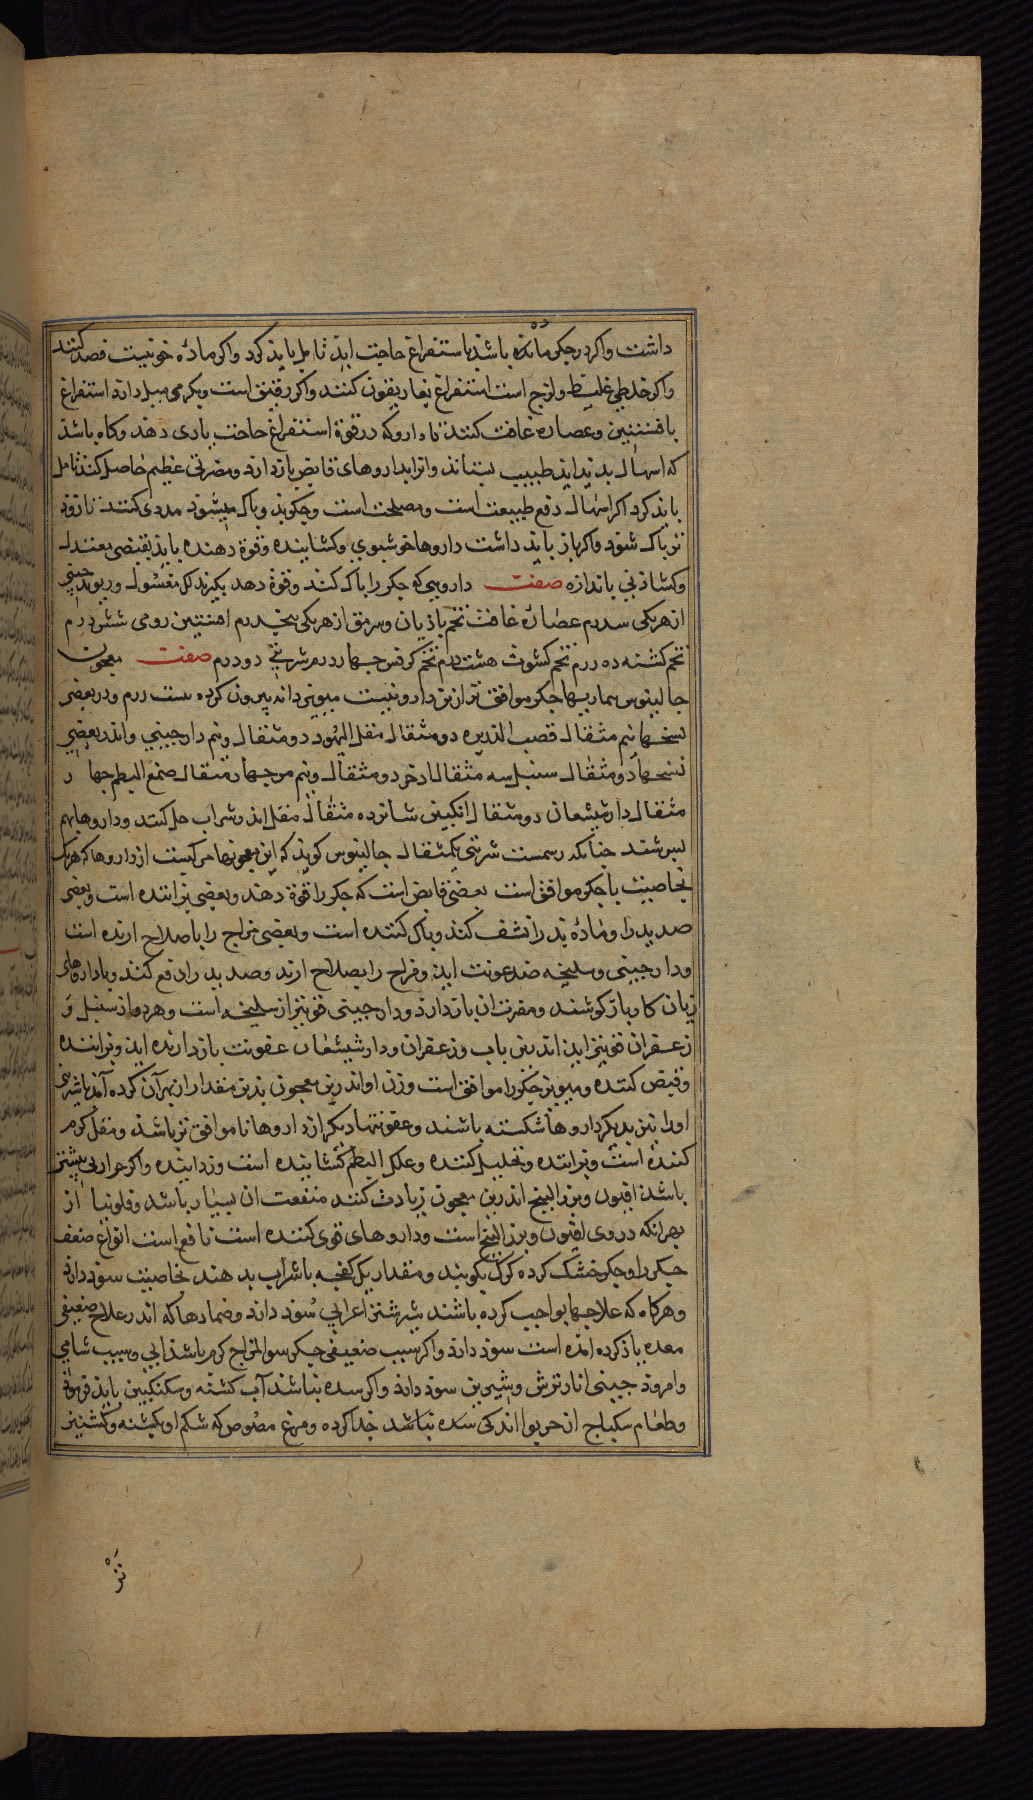 داشت واکر در جکر ماده باشد باستفراغ حاجت اید تامل باید کرد واکر ماده خونیست فصد کنند
واکر خلطی غلیظ ولزج است استفراغ بغاریقون کنند واکر رقیق است وبکرمی میل دارد استفراغ
بافسنتین وعصاره غافت کنند تا دارو که در قوة استفراغ حاجت یاری دهد وکاه باشد
که اسهال بدید اید طبیب بشتابد واترا بداروهای قابض بازدارد ومضرتی عظیم حاصل کند تامل
باید کرد اکر اسهال دفع طبیعت است ومصلحت است وجکر بذو پاک میشود مددی کنند تا زود
تر پاک شود واکر باز باید داشت داروها خوشبوی وکشاینده وقوة دهنده باید بقبضی معتدل
وکشادنی باندازه صفت دارویی که جکر را پاک کند وقوة دهد بکیرند لک مغسول وریوند چینی
از هر یکی سه درم عصاره غافت تخم بادیان وسرمق از هر یکی پنج درم افسنتین رومی شش درم
تخم کشنه ده درم تخم کشوث هشت درم تخم کرفس جهار درم شربتی دو درم صفت معجون
جالینوس بیماریها جکر موافق تر ازین دارو نیست میویز دانه بیرون کرده بیست درم ودر بعضی
نسخها نیم مثقال قصب الذریره دو مثقال مقل الیهود دو مثقال ونیم دارجینی واندر بعضی
نسخها دو مثقال سنبل سه مثقال اذخر دو مثقال ونیم مر جهار مثقال صمغ البطم جهار
مثقال دارشیشعان دو مثقال انکبین شانزده مثقال مقل اندر شراب حل کنند وداروها بهم
بسرشند جنانکه رسمست شربتی یکمثقال جالینوس کوید که این معجونها مرکبست از داروها که هر یک
بخاصیت با جکر موافق است بعضی قابض است که جکر را قوة دهند وبعضی پزاننده است وبعضی
صدید را وماده بد را نشف کند وپاک کننده است وبعضی مزاج را باصلاح ارنده است
ودارجینی وسلیخه ضد عفونت اید ومزاج را بصلاح ارند وصدید را دفع کنند وبا داروهای
زیان کار بازکوشند ومضرت ان بازدارد ودارجینی قویتر از سلیخه است وهر دو از سنبل و
زعفران قویتر ایند اندرین باب وزعفران ودارشیشعان عفونت بازدارنده اید وپزاننده
وقبض کننده ومیویز جکر را موافق است وزن او اندرین معجون بدین مقدار از بهر آن کرده آمد تا شیرینی
او را تیزی دیکر داروها شکسته باشند وعفونتها دیکر از داروها نا موافق تر باشد ومقل کرم
کننده است وپزاننده وتحلیل کننده وعلک البطم کشاینده است وزداینده واکر حرارتی بیشتر
باشد افیون وبزر البنج اندرین معجون زیادت کنند منفعت ان بسیار باشد وفلونیا از
بهر انکه در وی افیون وبزر البنج است وداروهای قوی کننده است نافع است انواع ضعف
جکر را وجکر خشک کرده کرک بکوبند ومقدار یک کفجه با شراب بدهند بخاصیت سود دارد
وهرکاه که علاجها بواجب کرده باشند شیر شتر اعرابی سود دارد وضمادها که اندر علاج ضعیفی
معده یاد کرده امده است سود دارد واکر سبب ضعیفی جکر سوالمزاج کرم باشد آبی وسیب شامی
وامرود جینی انار ترش وشیرین سود دارد واکر سده نباشد آب کشنه وسکنکبین باید
وطعام سکباج از خربوا اندکی سده نباشد جدا کرده ومرغ مصوص که شکم او بکشنه وکشنیز
تر